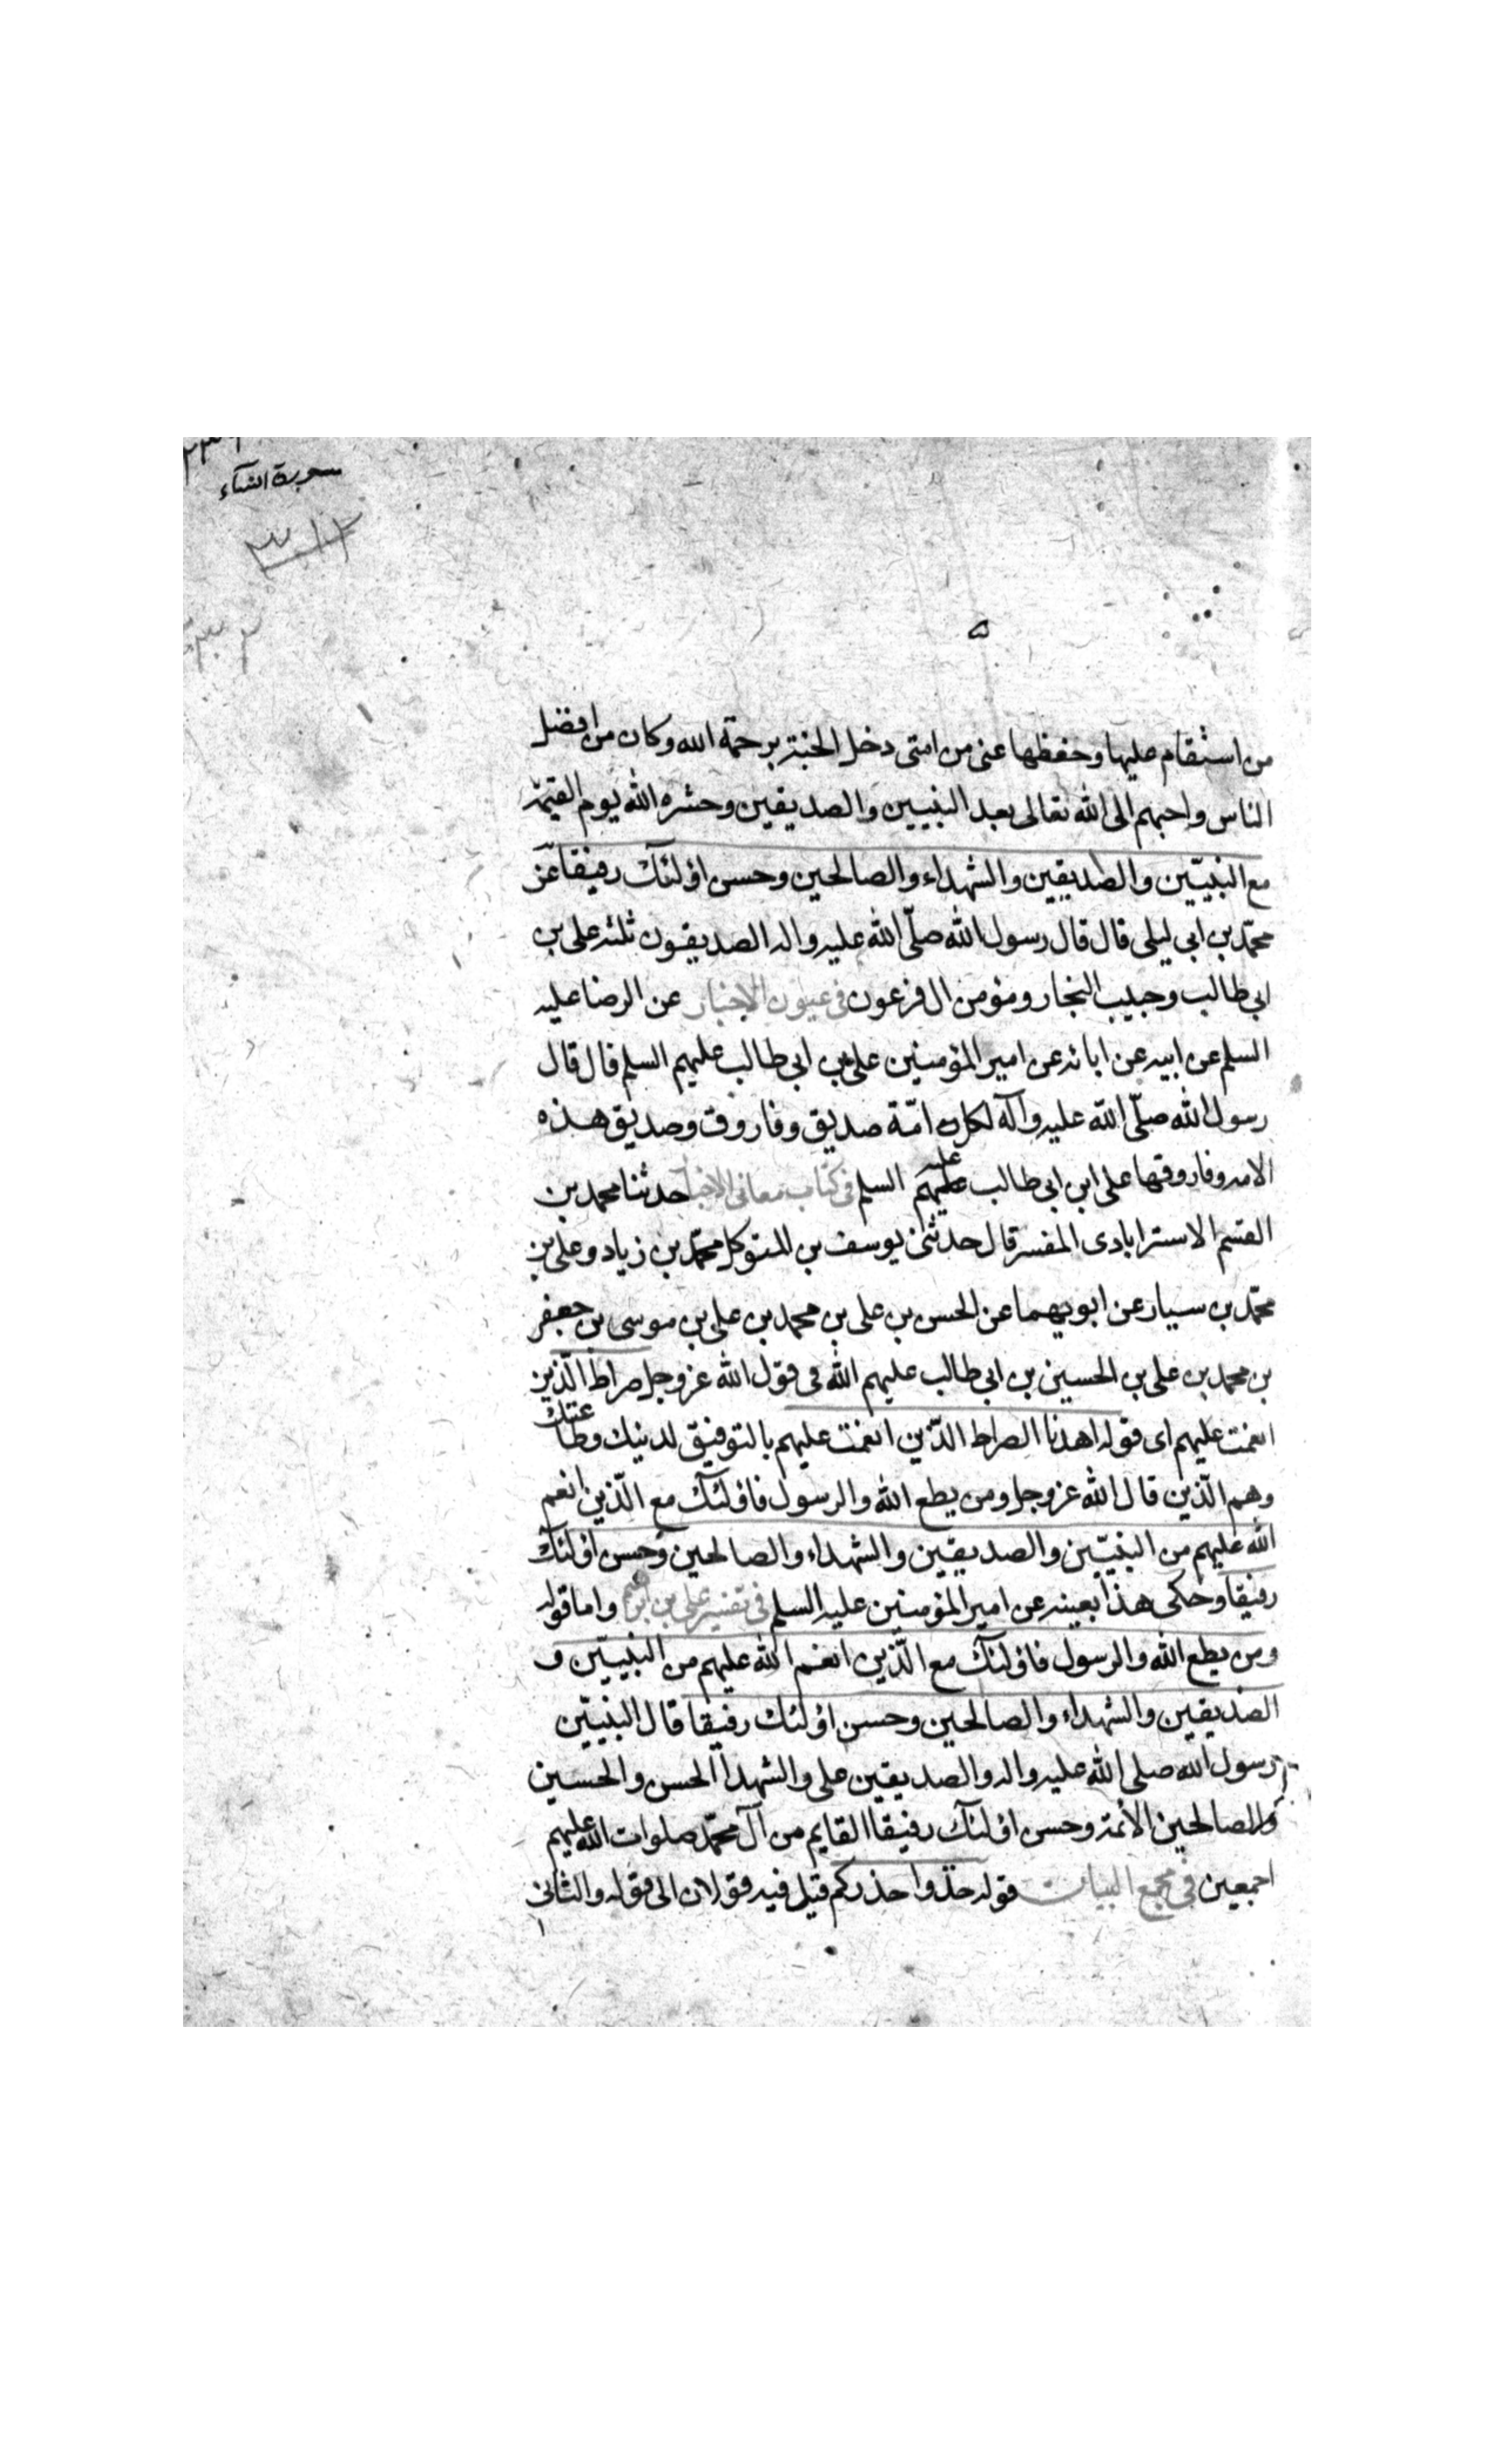 سورة النساء
من استقام عليها وحفظها عنى من امتى دخل الجنة برحمة الله وكان من افضل
الناس واحبهم الى الله تعالى بعد النبيين والصديقين وحشره الله يوم القيمة
مع النبيّين والصديقين والشهداء والصالحين وحسن اولئك رفيقا عن
محمّد بن ابى ليلى قال قال رسول الله صلّى الله عليه واله الصديقون ثلثه على بن
ابى طالب وحبيب النجار ومؤمن ال فرعون فى عيون الاخبار عن الرضا عليه
السلم عن ابيه عن ابائه عن امير المؤمنين على بن ابى طالب عليهم السلم قال قال
رسول الله صلّى الله عليه وآله لكل امّة صديق وفاروق وصديق هذه
الامه وفاروقها على ابن ابى طالب عليه السلم فى كتاب معانى الاخبار حدثنا محمد بن
القسم الاسترابادى المفسر قال حدثنى يوسف بن المتوكل محمّد بن زياد وعلى بن
محمّد بن سيار عن ابويهما عن الحسن بن على بن محمد بن على بن موسى بن جعفر
بن محمد بن على بن الحسين بن ابى طالب عليهم الله فى قول الله عز وجل صراط الّذين
انعمت عليهم اى قوله اهدنا الصراط الذّين انعمت عليهم بالتوفيق لدينك وطاعتك
وهم الّذين قال الله عز وجل ومن يطع الله والرسول فاولئك مع الّذين انعم
الله عليهم من النبيّين والصديقين والشهداء والصالحين وحسن اولئك
رفيقا وحكى هذا بعينه عن امير المؤمنين عليه السلم فى تفسير على بن ابرهيم واما قوله
ومن يطع الله والرسول فاولئك مع الّذين انعم الله عليهم من النبيّين و
الصديقين والشهداء والصالحين وحسن اولئك رفيقا قال النبيّين
رسول الله صلى الله عليه واله والصديقين على والشهدا الحسن والحسين
والصالحين الائمة وحسن اولئك رفيقا القايم من آل محمّد صلوات الله عليهم
اجمعين فى مجمع البيان قوله خذوا حذركم قيل فيه قولان الى قوله والثانى